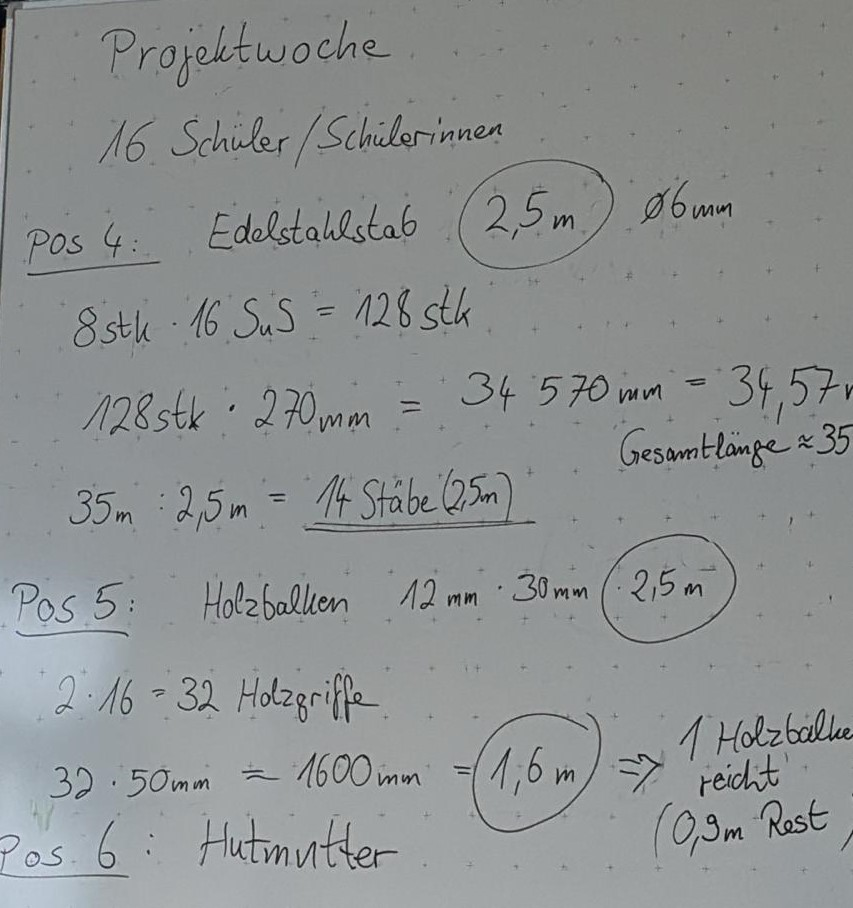 Projektwoche
16 Schüler/Schülerinnen
Pos 4: Edelstahlstab 2,5m ø6mm
8stk · 16 SuS = 128 stk
128stk · 270mm = 34 570mm = 34,57
Gesamtlänge ≈ 35
35m : 2,5m = 14 Stäbe (2,5m)
Pos 5: Holzbalken 12mm · 30mm · 2,5m
2·16 = 32 Holzgriffe
32 · 50mm = 1600mm = 1,6m ⇒ 1 Holzbalke
reicht
(0,9m Rest)
Pos. 6: Hutmutter